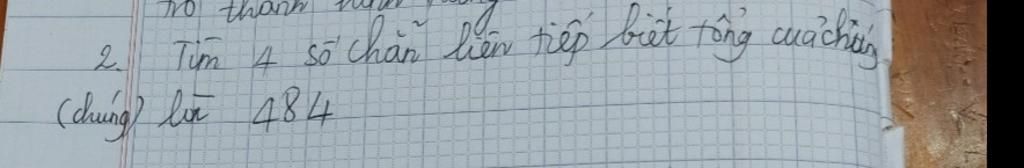 nộ thành
2. Tìm 4 số chẵn liên tiếp biết tổng của chúng
(chúng) là 484